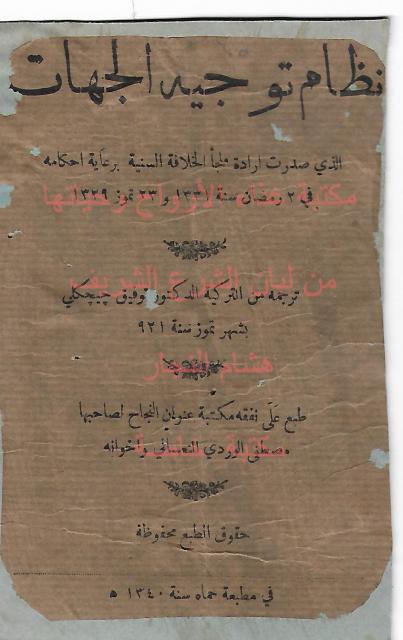 نظام توجيه الجهات
الذي صدرت ارادة ملجأ الخلافة السنية برعاية احكامه
في ٢ رمضان سنة ١٣٣١ و ٢٣ تموز ١٣٢٩
مكتبة
من لبان الشرع الشريف
ترجمه من التركية الدكتور توفيق چيچكلي
بشهر تموز سنة ٩٢١
هشام النجار
طبع على نفقه مكتبة عنوان النجاح لصاحبها
مصطفى الوردي النعساني واخوانه
مكتبة
حقوق الطبع محفوظة
في مطبعة حماه سنة ١٣٤٠ ه